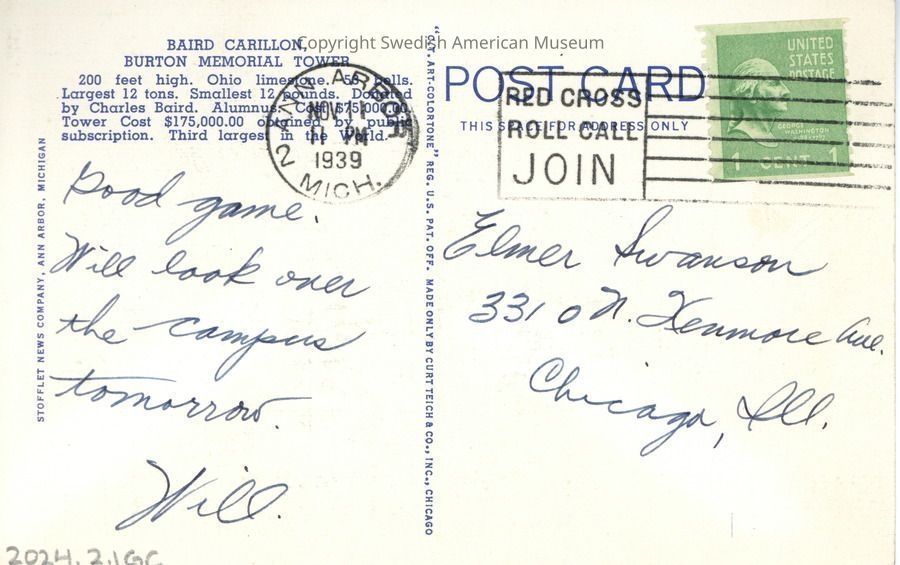 Copyright Swedish American Museum
BAIRD CARILLON,
BURTON MEMORIAL TOWER
200 feet high. Ohio limestone. 53 bells.
Largest 12 tons. Smallest 12 pounds. Donated
by Charles Baird. Alumnus. Cost $75,000.00.
Tower Cost $175,000.00 obtained by public
subscription. Third largest in the World.
ANN ARBOR
NOV
11 PM
1939
2
MICH.
STOFFLET NEWS COMPANY, ANN ARBOR, MICHIGAN
Good game.
Will look over
the campus
tomorrow.
Will.
2024.2.1GC
"C.T. ART-COLORTONE" REG. U.S. PAT. OFF. MADE ONLY BY CURT TEICH & CO., INC., CHICAGO
POST CARD
THIS SPACE FOR ADDRESS ONLY
RED CROSS
ROLL CALL
JOIN
UNITED
STATES
POSTAGE
GEORGE
WASHINGTON
1 CENT 1
Elmer Swanson
3310 N. Kenmore Ave.
Chicago, Ill.